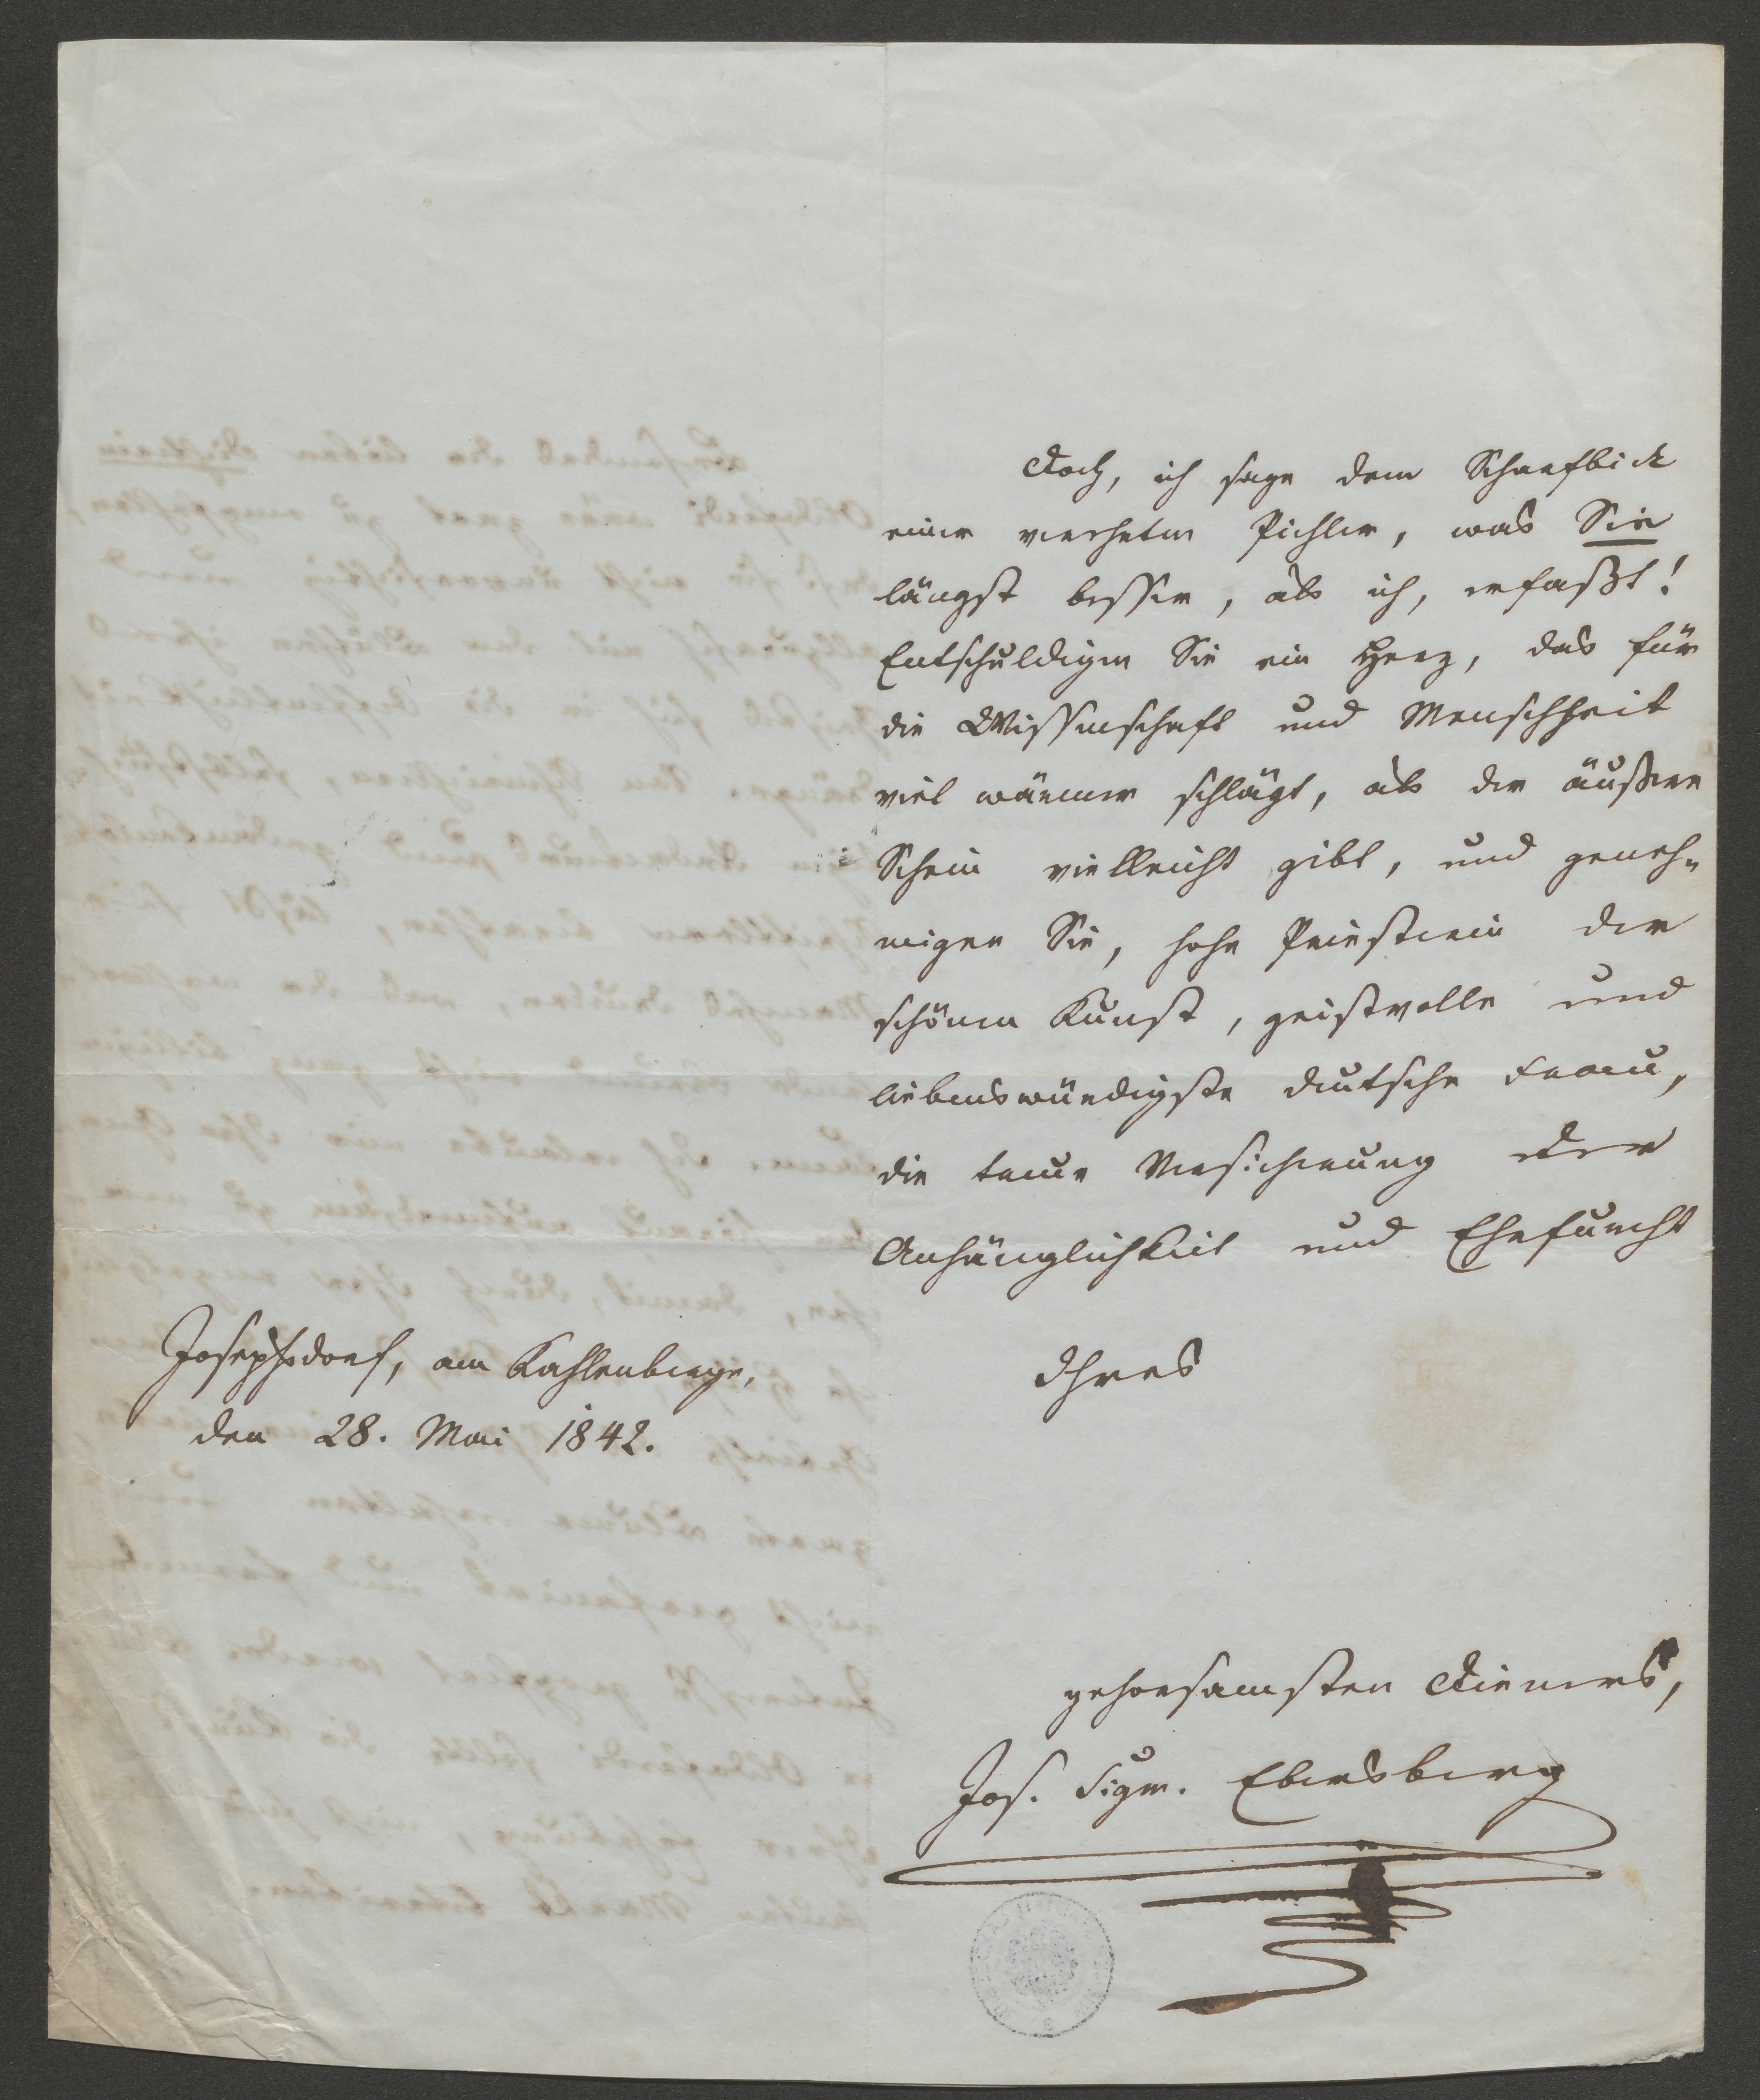 Doch, ich sage dem Scharfblick
einer verehrten Pichler, was Sie
längst besser, als ich, erfaßt!
Entschuldigen Sie ein Herz, das für
die Wissenschaft und Menschheit
viel wärmer schlägt, als der äußere
Schein vielleicht gibt, und geneh-
migen Sie, hohe Priesterin der
schönen Kunst, geistvolle und
liebenswürdigste deutsche Frau,
die teure Versicherung der
Anhänglichkeit und Ehrfurcht
Ihres
Josephsdorf, am Kahlenberge,
den 28. Mai 1842.
gehorsamsten Dieners,
Jos. Sigm. Ebersberg